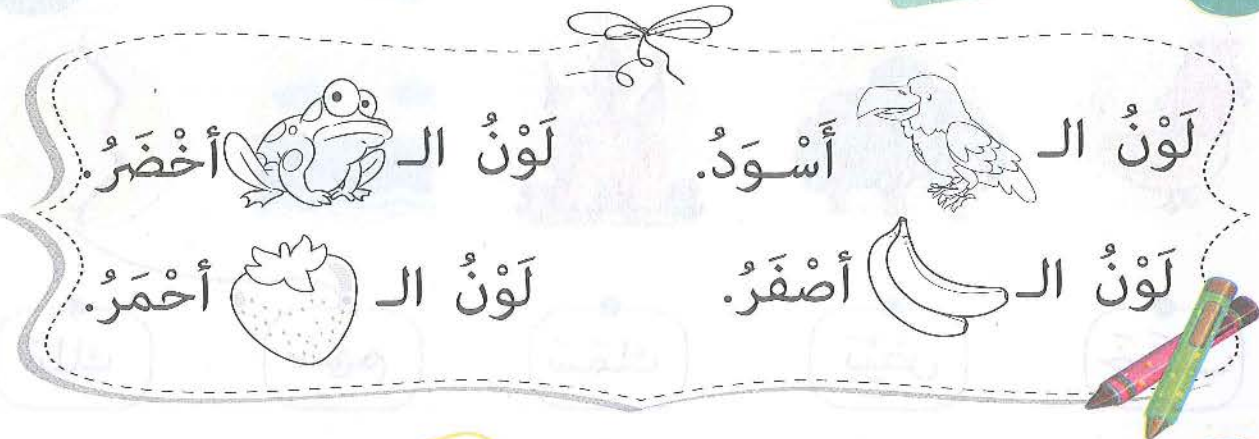 لَوْنُ الـ أَسْـوَدُ. لَوْنُ الـ أخْضَرُ.
لَوْنُ الـ أصْفَرُ. لَوْنُ الـ أحْمَرُ.